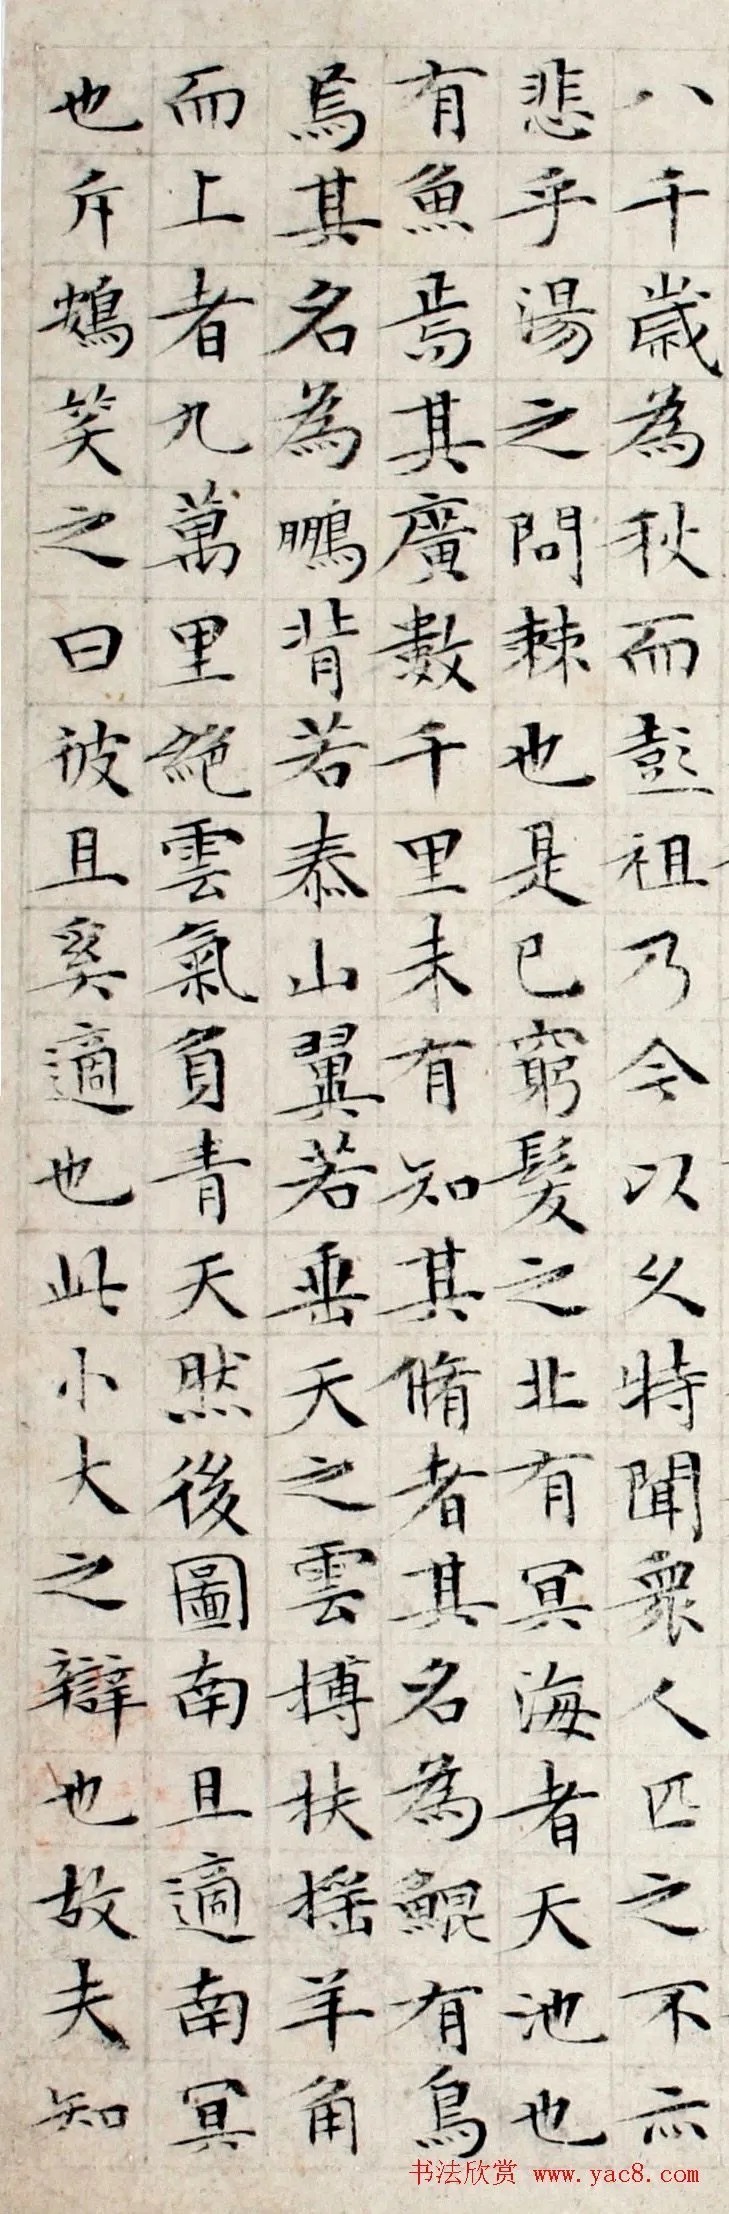 八千歲為秋而彭祖乃今以久特聞眾人匹之不亦
悲乎湯之問棘也是已窮髮之北有冥海者天池也
有魚焉其廣數千里未有知其脩者其名為鯤有鳥
焉其名為鵬背若泰山翼若垂天之雲摶扶摇羊角
而上者九萬里絶雲氣負青天然後圖南且適南冥
也斥鴳笑之曰彼且奚適也此小大之辯也故夫知
书法欣赏 www.yac8.com